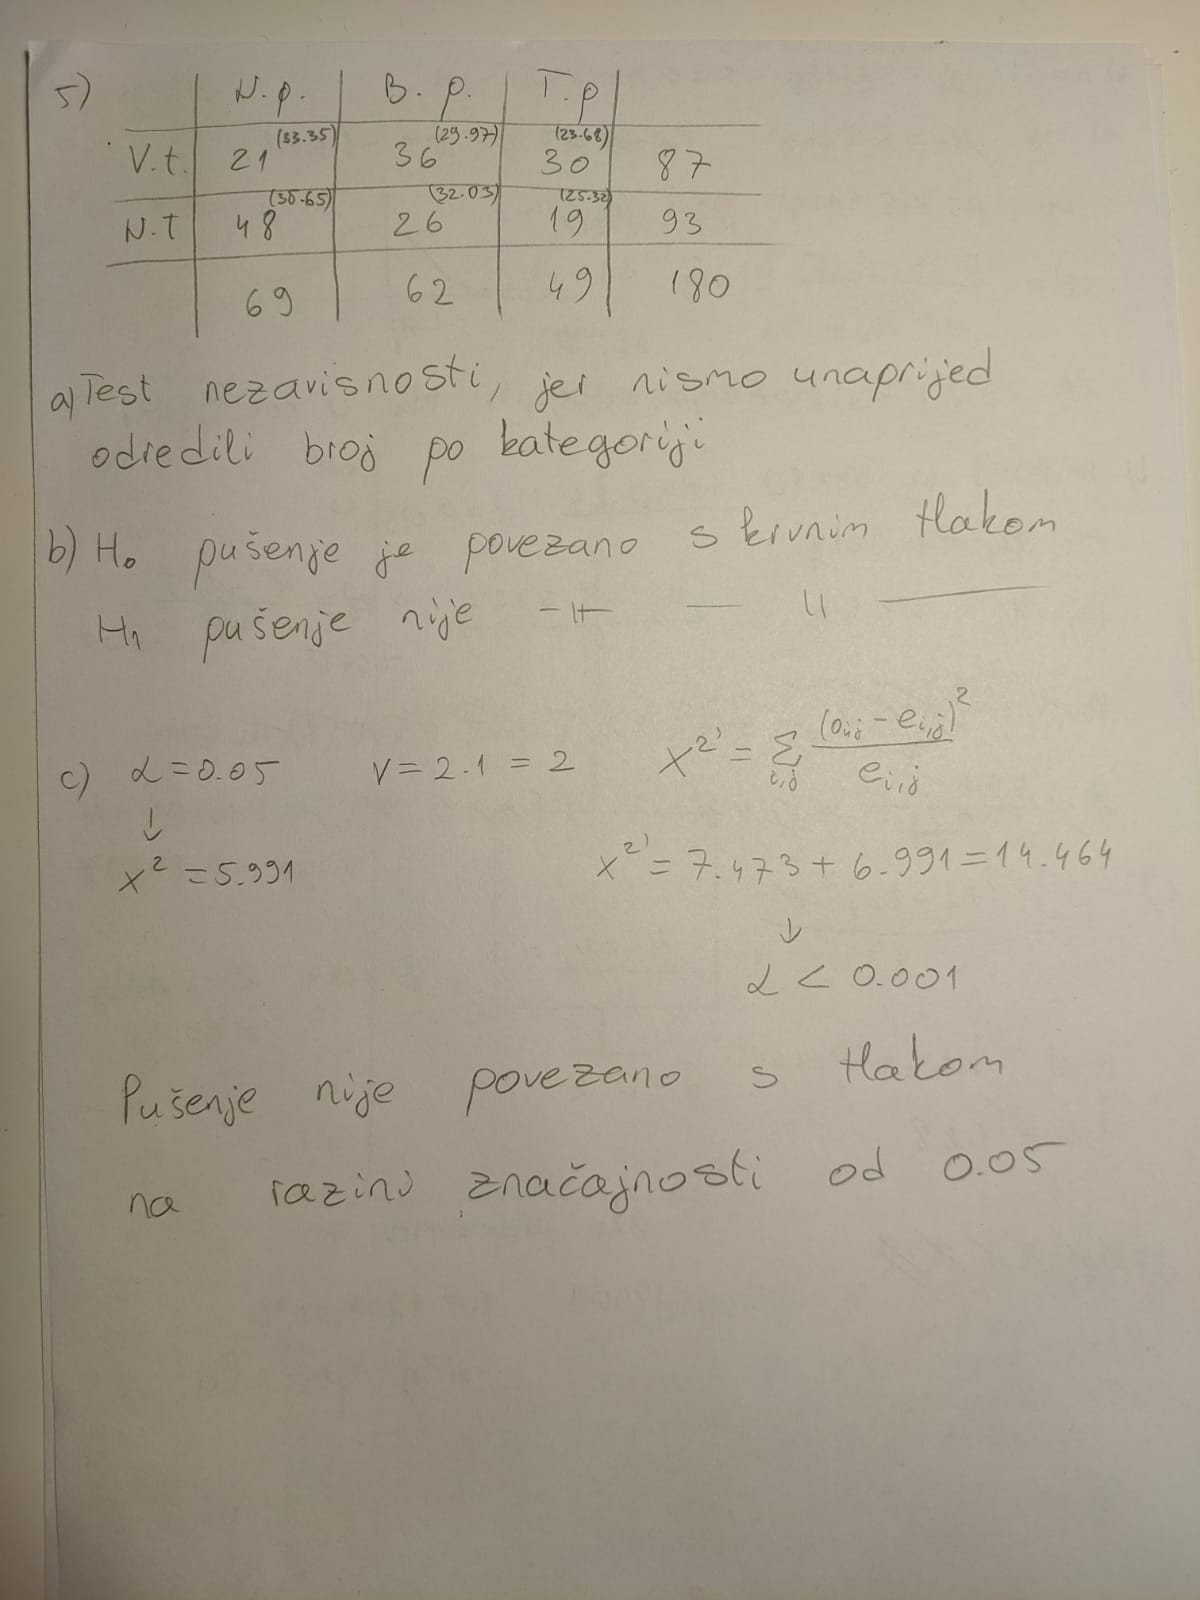 5) N.p. B.p. T.p
V.t. 21 (33.35) 36 (29.97) 30 (23.68) 87
N.T 48 (35.65) 26 (32.03) 19 (25.32) 93
69 62 49 180
a) Test nezavisnosti, jer nismo unaprijed
odredili broj po kategoriji
b) H₀ pušenje je povezano s krvnim tlakom
H₁ pušenje nije -||- — || —
c) α = 0.05 ν = 2·1 = 2 χ²' = Σ i,j (o i,j - e i,j)² / e i,j
↓
χ² = 5.991 χ²' = 7.473 + 6.991 = 14.464
↓
α < 0.001
Pušenje nije povezano s tlakom
na razini značajnosti od 0.05